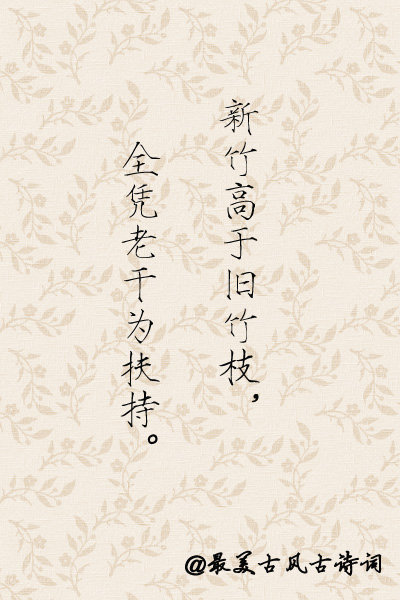 新竹高于旧竹枝，
全凭老干为扶持。
@最美古风古诗词